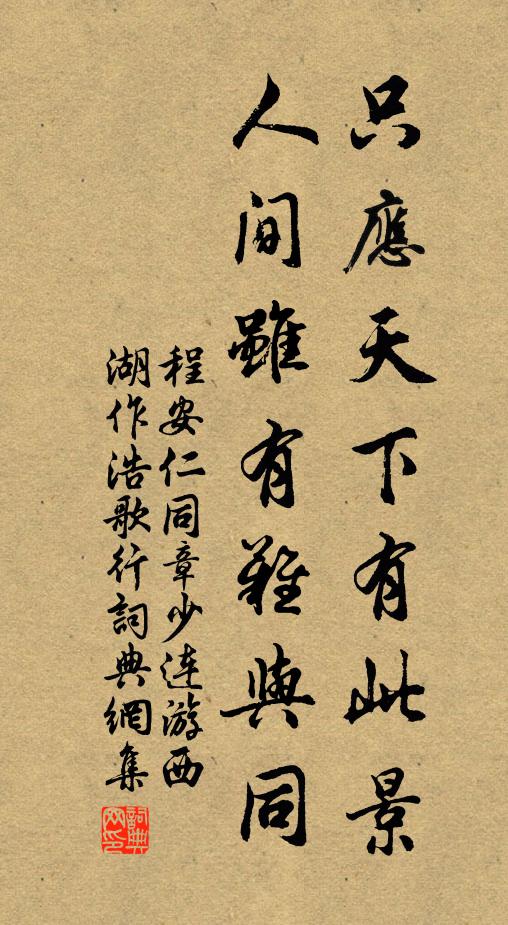 只應天下有此景
人间雖有難與同
程安仁同章少连游西
湖作浩歌行詞典網集
詞典
网印